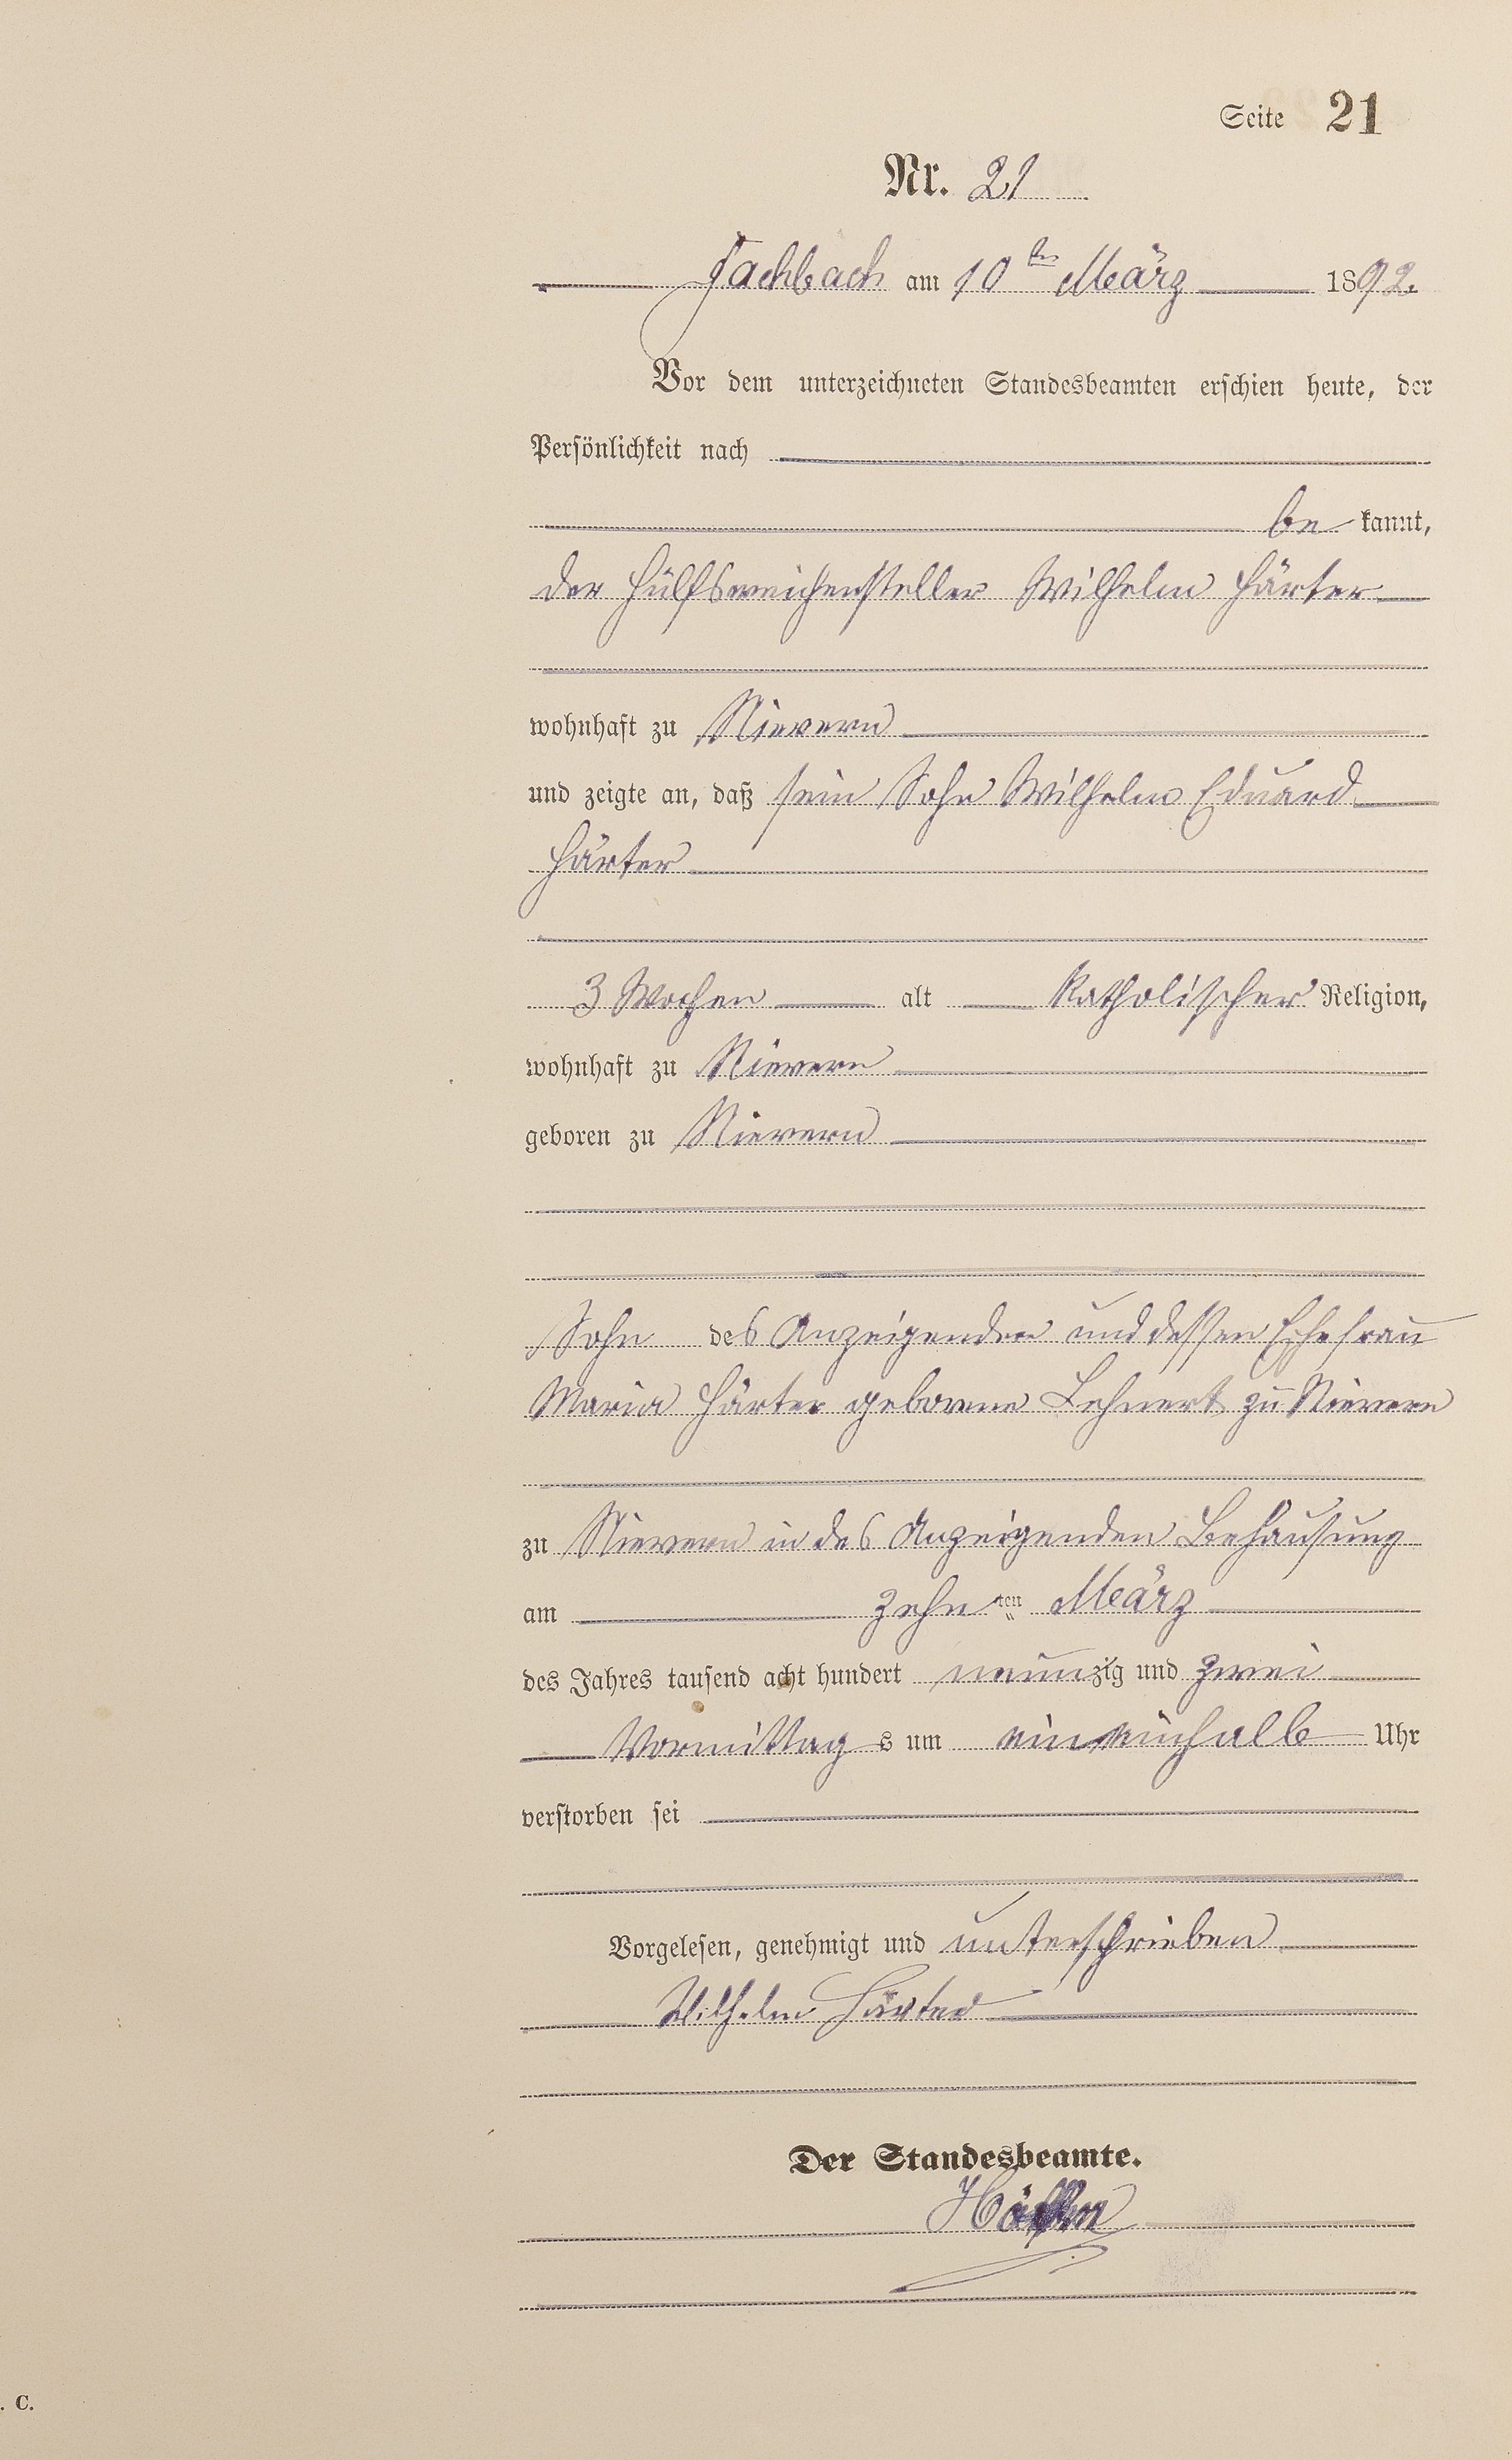 Seite 21
Nr. 21
Fachbach am 10ten März 1892.
Vor dem unterzeichneten Standesbeamten erschien heute, der
Persönlichkeit nach
be kannt,
der Hülfsweichensteller Wilhelm Härter
wohnhaft zu Nievern
und zeigte an, daß sein Sohn Wilhelm Eduard
Härter
3 Wochen alt katholischer Religion,
wohnhaft zu Nievern
geboren zu Nievern
Sohn des Anzeigenden und dessen Ehefrau
Maria Härter geborene Lehnert zu Nievern
zu Nievern in des Anzeigenden Behausung
am zehn ten März
des Jahres tausend acht hundert neunzig und zwei
Vormittag s um eineinhalb Uhr
verstorben sei
Vorgelesen, genehmigt und unterschrieben
Wilhelm Härter
Der Standesbeamte.
. C.